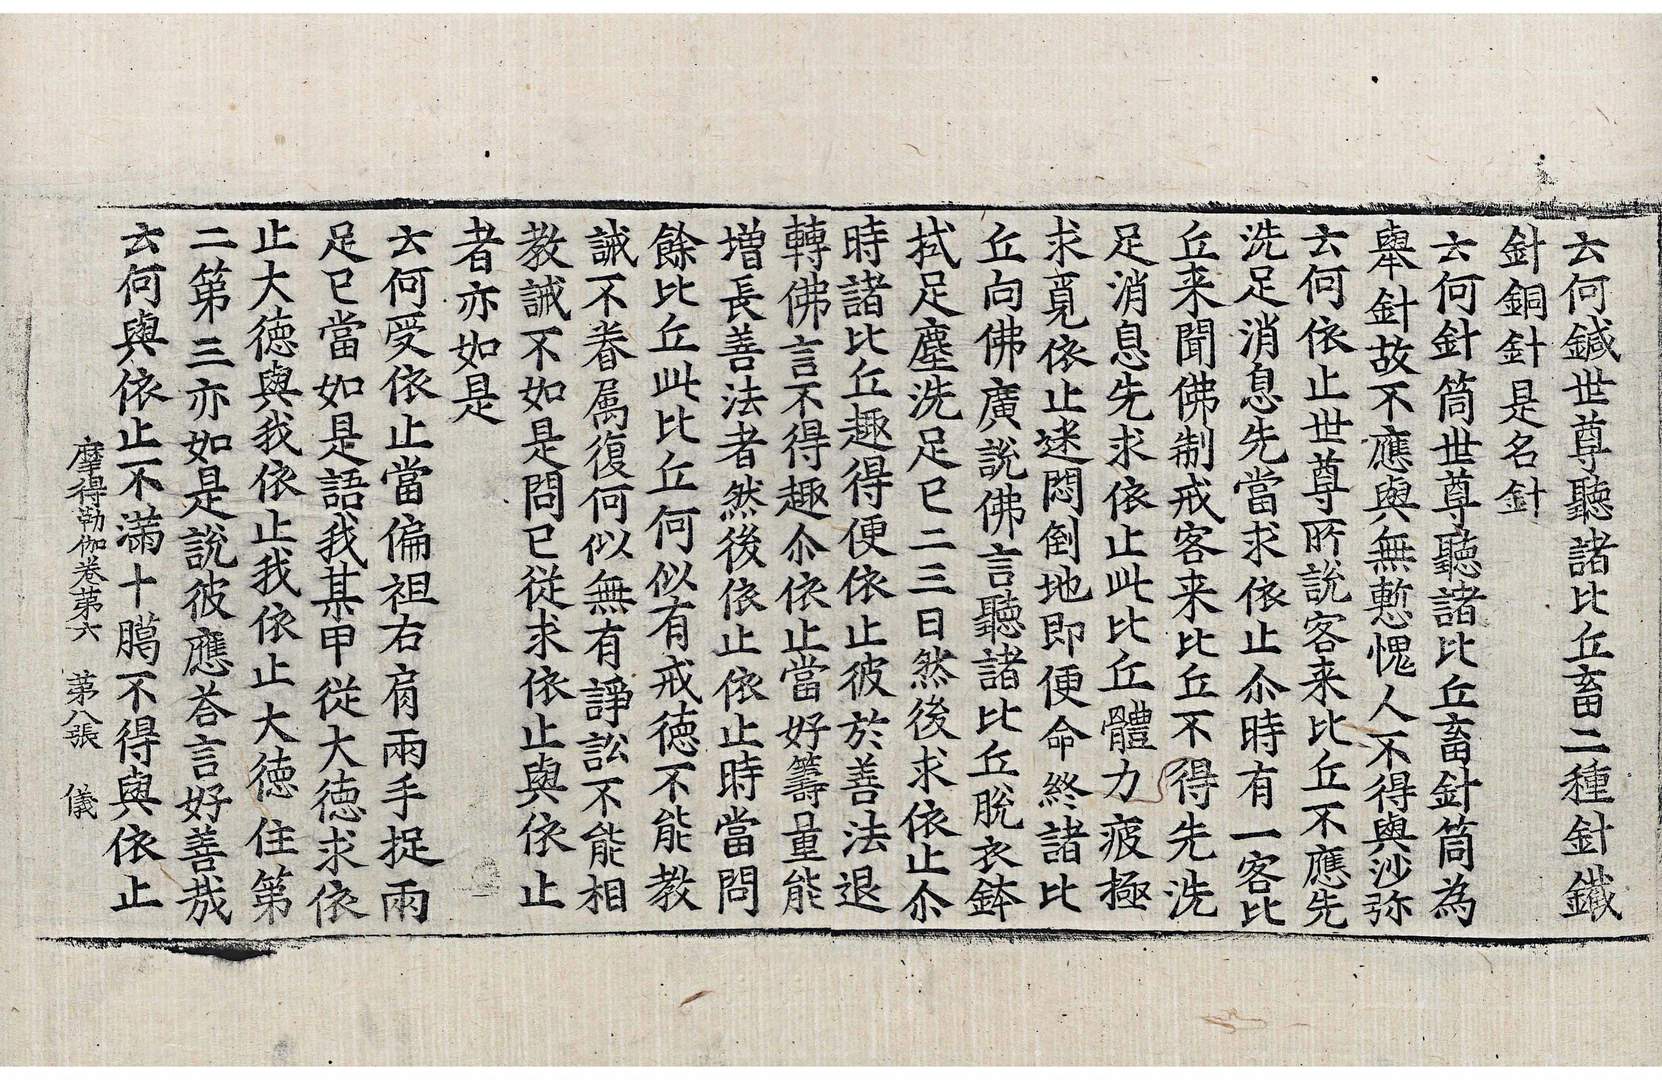 云何鍼世尊聽諸比丘畜二種針鐵
針銅針是名針
云何針筒世尊聽諸比丘畜針筒為
舉針故不應與無慙愧人不得與沙弥
云何依止世尊所說客来比丘不應先
洗足消息先當求依止尒時有一客比
丘来聞佛制戒客来比丘不得先洗
足消息先求依止此比丘體力疲極
求覓依止迷悶倒地即便命終諸比
丘向佛廣說佛言聽諸比丘脫衣鉢
拭足塵洗足已二三日然後求依止尒
時諸比丘趣得便依止彼於善法退
轉佛言不得趣尒依止當好籌量能
增長善法者然後依止依止時當問
餘比丘此比丘何似有戒德不能教
誡不眷屬復何似無有諍訟不能相
教誡不如是問已從求依止與依止
者亦如是
云何受依止當偏袒右肩兩手捉兩
足已當如是語我某甲從大德求依
止大德與我依止我依止大德住第
二第三亦如是說彼應荅言好善哉
云何與依止不滿十臈不得與依止
摩得勒伽卷第六　第八張　儀